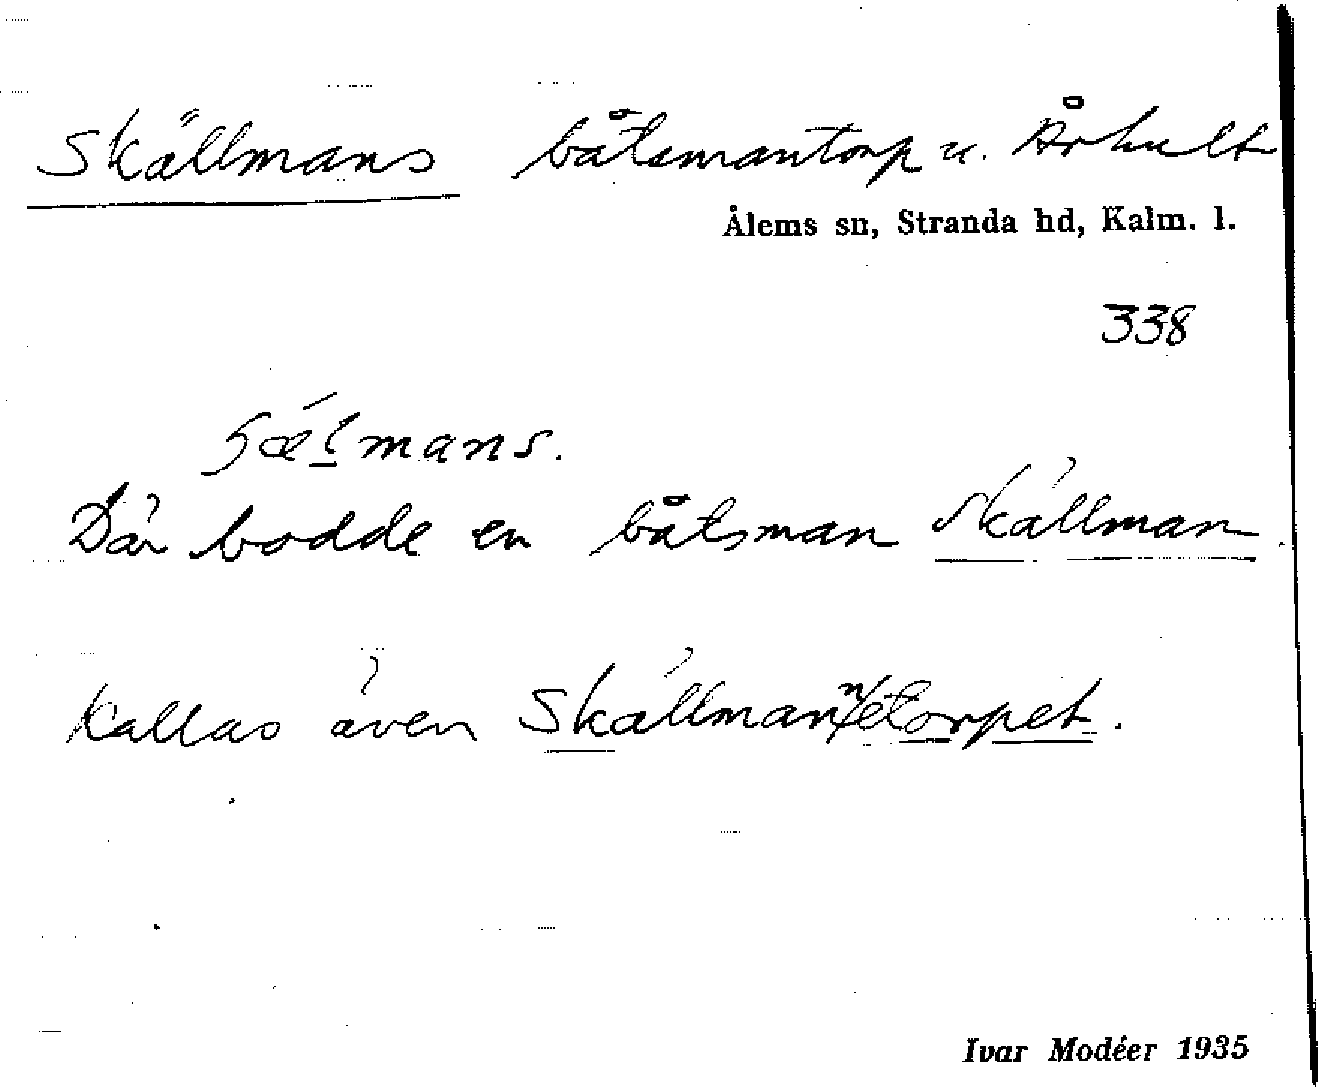 Skällmans båtsmantorp u. Århult
Ålems sn, Stranda hd, Kalm. l.
338
Där bodde en båtsman Skällman.
Kallas även Skällmannetorpet.
Ivar Modéer 1935